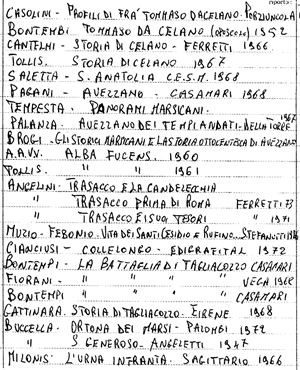 riporto:
CASOLINI - PROFILI DI FRA' TOMMASO DA CELANO. PORZIUNCOLA
BONTEMBI TOMMASO DA CELANO (OPUSCOLO) 1952
CANTELMI - STORIA DI CELANO - FERRETTI 1966
TOLLIS. STORIA DI CELANO 1967
SALETTA - S. ANATOLIA C.E.S.M. 1968
PAGANI - AVEZZANO - CASAMARI 1968
TEMPESTA. PANORAMI MARSICANI.
PALANZA. AVEZZANO DEI TEMPI ANDATI - DELLA TORRE 1967
BROGI - GLI STORICI MARSICANI E LA STORIA OTTOCENTESCA DI AVEZZANO
A.A.V.V. ALBA FUCENS. 1960
TOLLIS. " " 1961
ANGELINI - TRASACCO E LA CANDELECCHIA
" TRASACCO PRIMA DI ROMA FERRETTI 73
" TRASACCO E I SUOI TESORI " 1971
MUZIO - FEBONIO. VITA DEI SANTI CESIDIO E RUFINO. STEFANUTTI
CIANCIUSI - COLLELONGO - EDIGRAFITAL 1972
BONTEMPI - LA BATTAGLIA DI TAGLIACOZZO CASAMARI
FIORANI - " " " " VEGA 1968
BONTEMPI " " " " CASAMARI
GATTINARA. STORIA DI TAGLIACOZZO. EIRENE 1968
BUCCELLA. ORTONA DEI MARSI - PALOMBI 1972
" S GENEROSO - ANGELETTI 1947
MILONIS. L'URNA INFRANTA. SAGITTARIO 1966